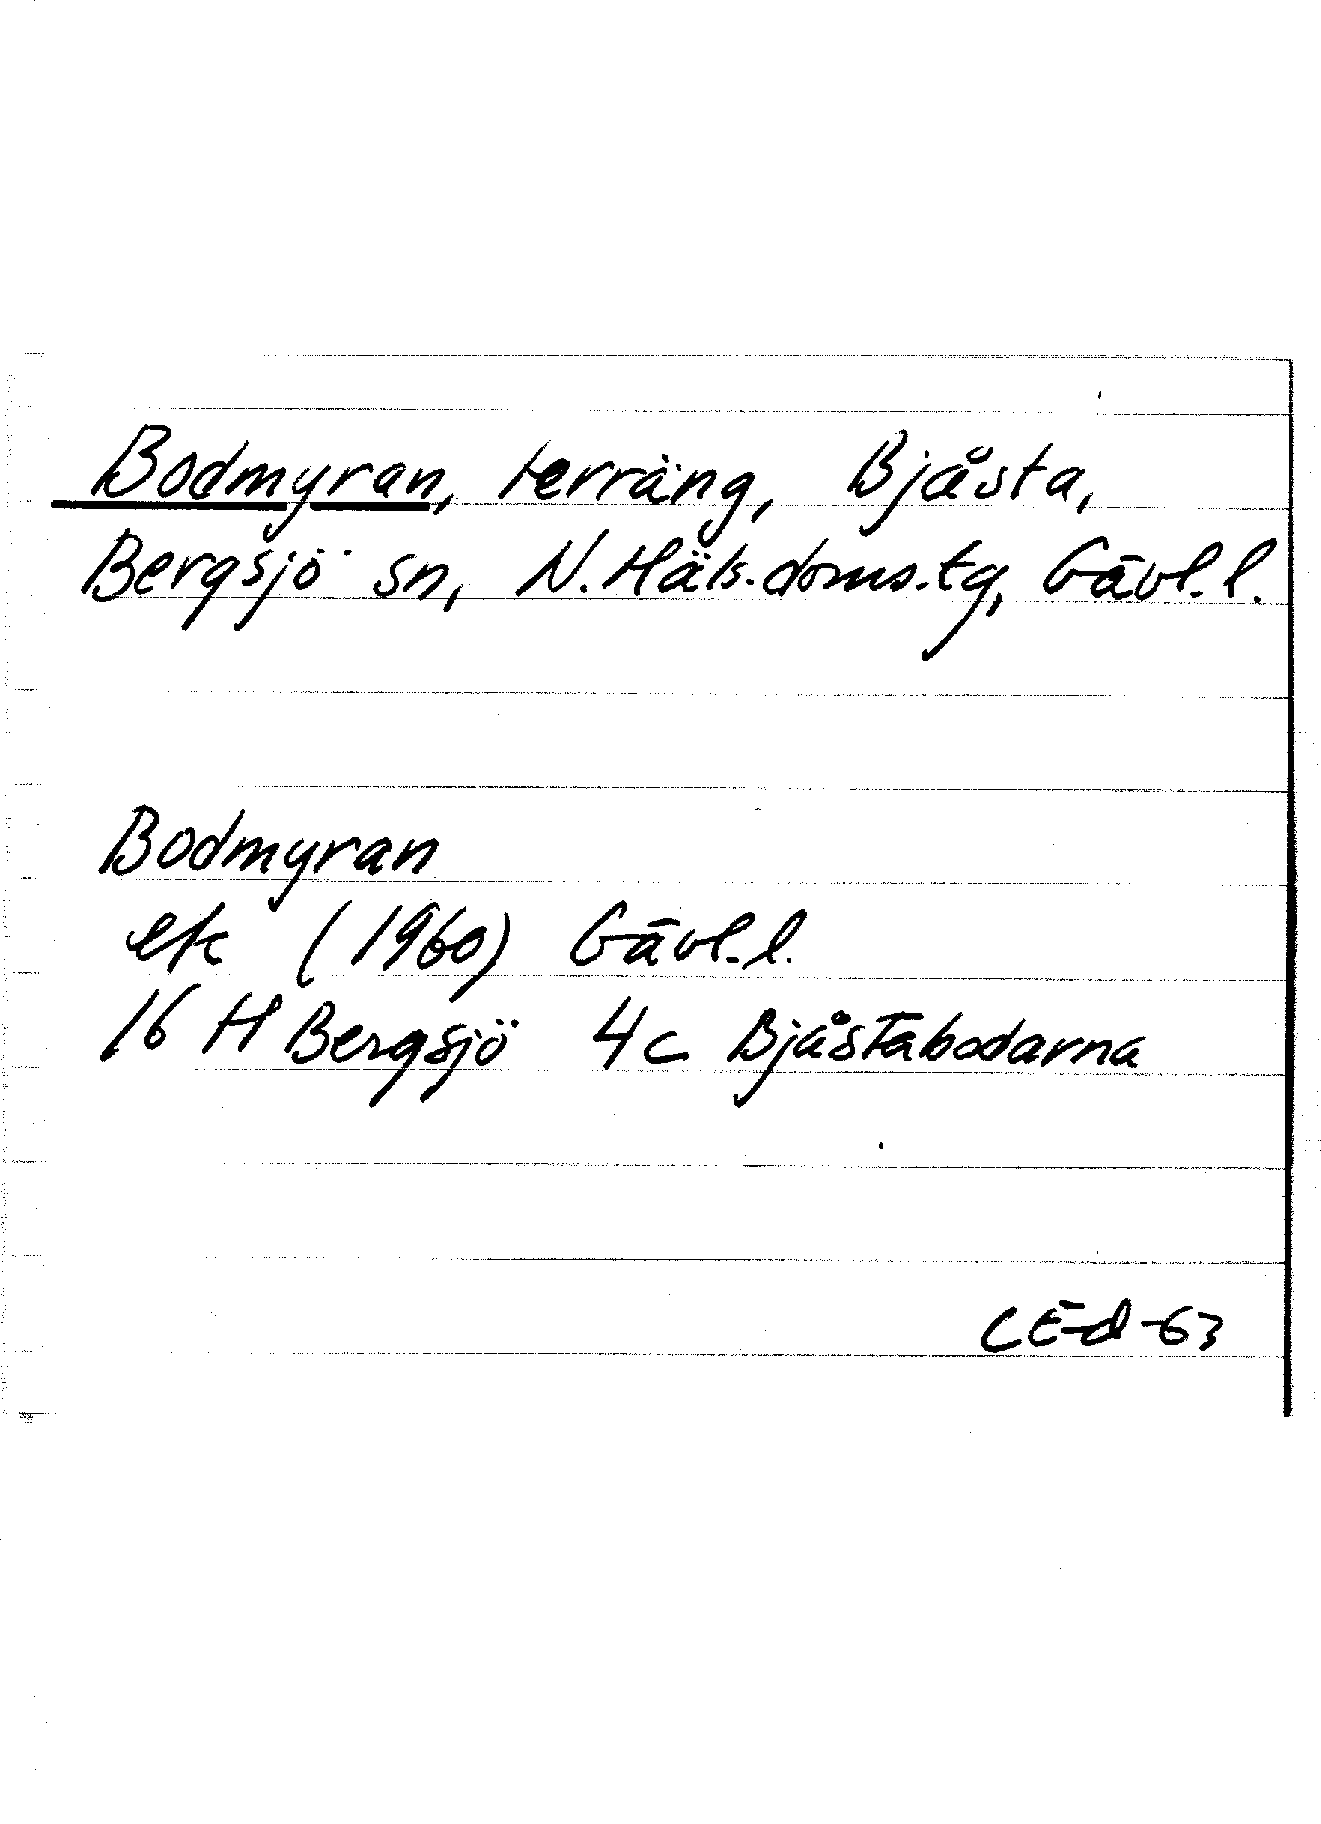 Bodmyran, terräng, Bjåsta,
Bergsjö sn, N. Häls. doms.tg, Gävl. l.
Bodmyran
ek (1960) Gävl. l.
16 H Bergsjö 4c Bjåstabodarna
CE-d -63